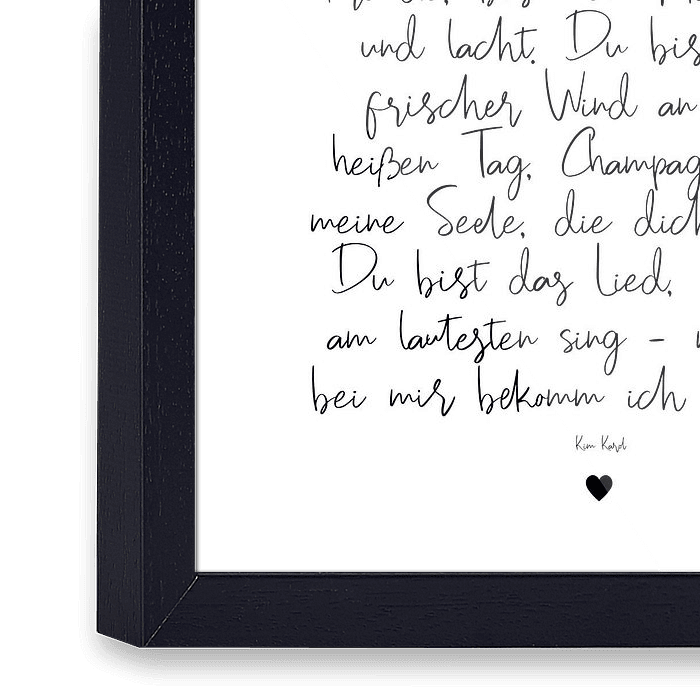 und lacht. Du bis
frischer Wind an
heißen Tag, Champag
meine Seele, die dich
Du bist das Lied,
am lautesten sing -
bei mir bekomm ich
Kim Kard